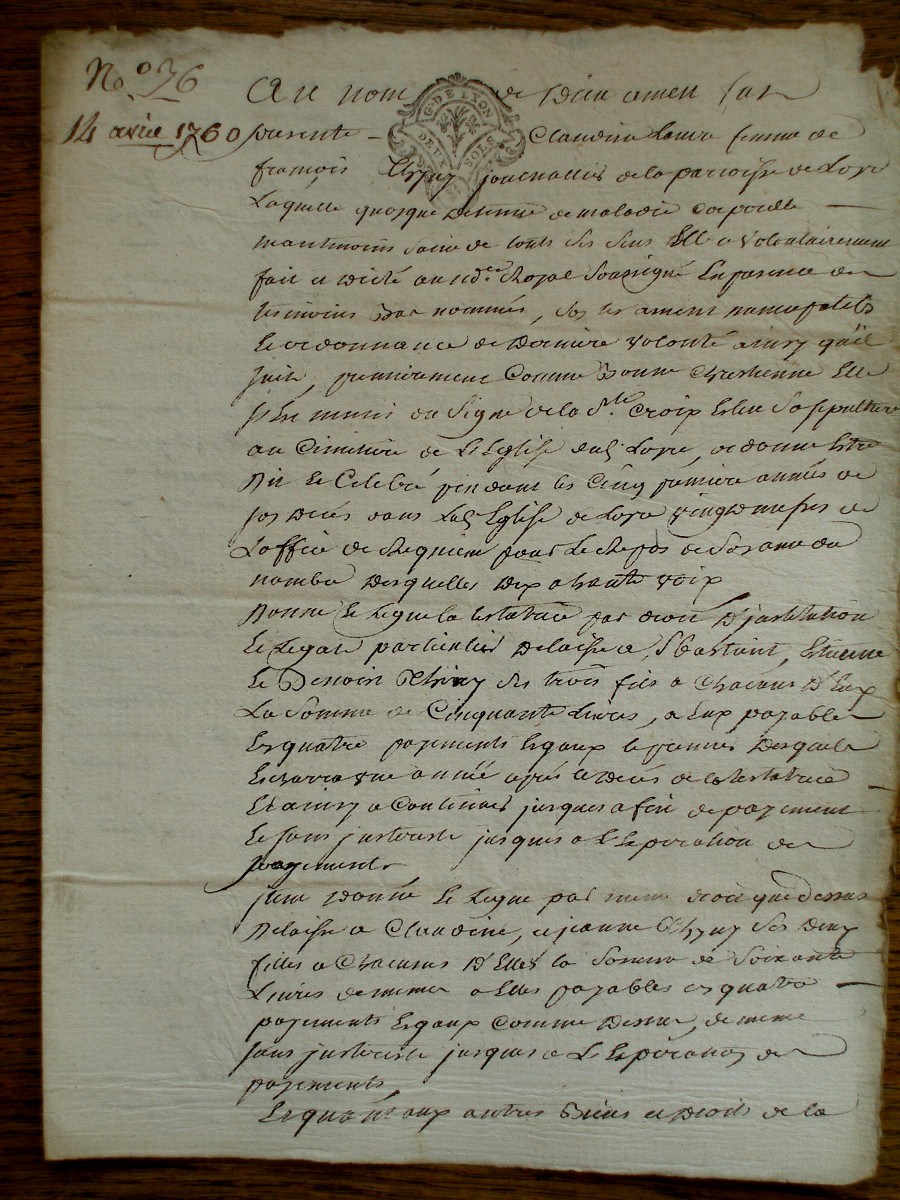 No. 76
14 avril 1760
Au nom de Dieu amen fut
G. DE LYON
DEUX SOLS
presente Claudine femme de
françois Thizy journallier de la parroisse de Loyre
Laquelle quoyque detenüe de maladie corporelle
neantmoins saine de touts ses sens Elle a volontairement
fait et dicté au nore Royal soussigné En presence des
tesmoins bas nommés, son testament nuncupatif
Et ordonnance de derniere volonté ainsy qu'il
suit, premierement comme bonne chrestienne Elle
s'est munie du signe de la Ste croix Eslu sa sepulture
au cimitiere de L'Eglise dud Loyre, ordonne Estre
dit Et Celebré pendant les cinq premiere années de
son déces dans lad Eglise de Loyre vingt messes de
L'office de Requiem pour Le Repos de son ame du
nombre desquelles dix a haute voix
Donne Et Legue la testatrice par droit d'institution
Et Legat particulier delaisse a Sbastient, Etienne
Et Benoist Thizy ses trois fils a chacuns d'Eux
La somme de cinquante Livres, a Eux payable
En quatre payements Egaux le premier desquels
Escherra une année après le déces de la testatrice
Et ainsy a continuer jusques a fin de payement
Et sans jnterest jusques a L'Expiration des
payements
jtem donne Et Legue par meme droit que dessus
Delaisse a Claudine, et jeanne Thizy ses deux
filles a chacunes d'Elles la somme de soixante
Livres de meme a Elles payables en quatre
payements Egaux comme dessus, de meme
sans jnterest jusques a L'Expiration des
payements
Et quant aux autres Biens et Droits de la